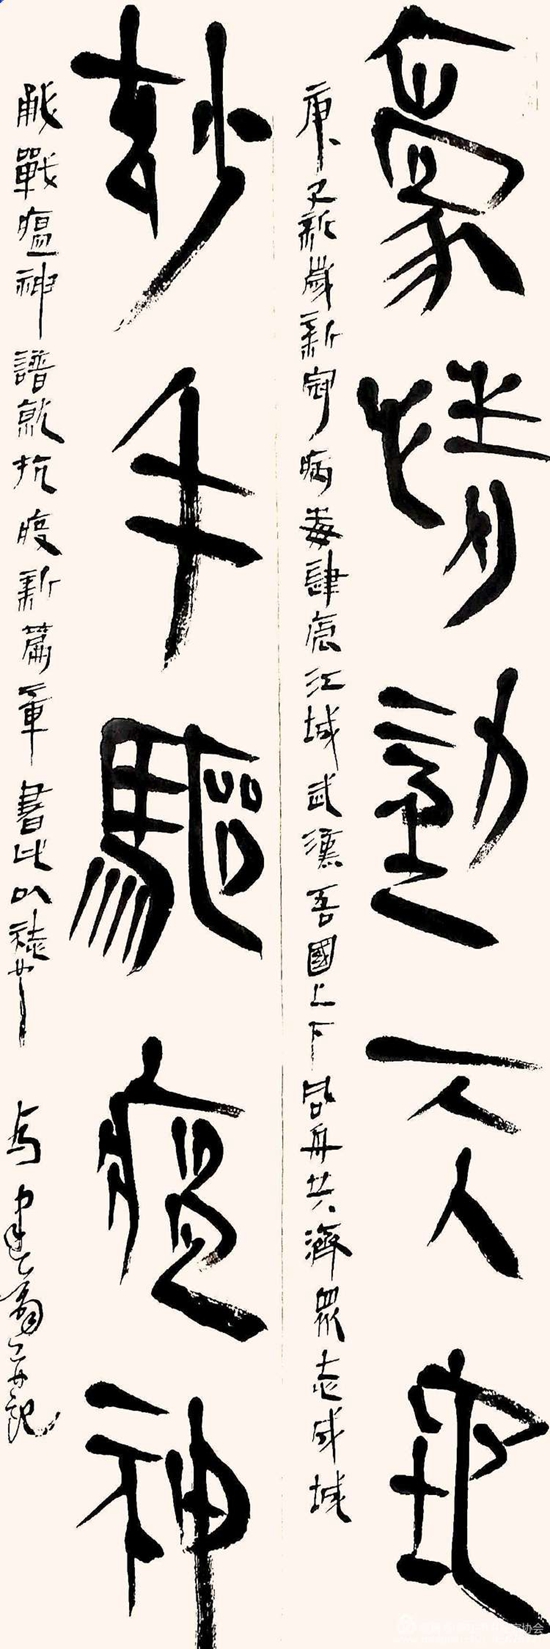 豪情動天地
庚子新歲新冠病毒肆虐江城武漢吾國上下同舟共濟眾志成城
妙手驅瘟神
戰瘟神譜就抗疫新篇章書此以
建 並記